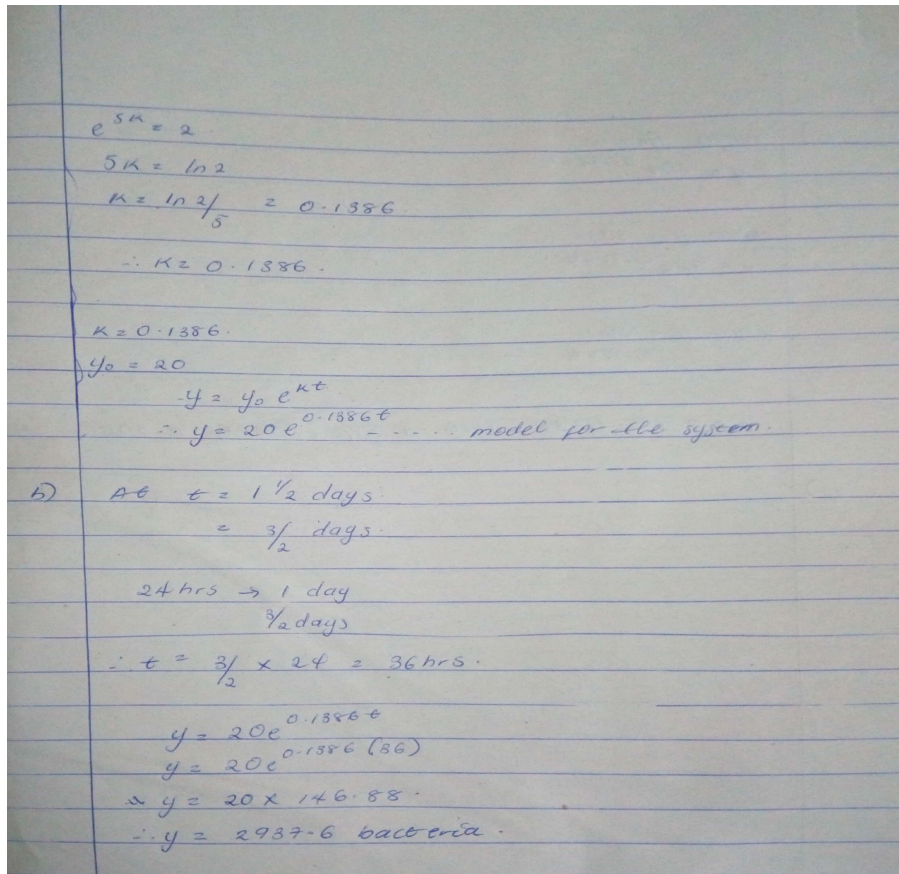 e^5k = 2
5k = ln 2
k = ln 2/5 = 0.1386
∴ k = 0.1386.
k = 0.1386.
y₀ = 20
y = y₀ e^kt
∴ y = 20e^0.1386t - - - - . . . model for the system.
b) At t = 1 1/2 days.
= 3/2 days.
24 hrs → 1 day
3/2 days
∴ t = 3/2 × 24 = 36 hrs.
y = 20e^0.1386t
y = 20e^0.1386(36)
y = 20 × 146.88.
∴ y = 2937.6 bacteria.